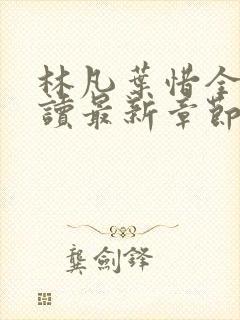 林凡葉惜全
讀最新章節
龔劍鋒